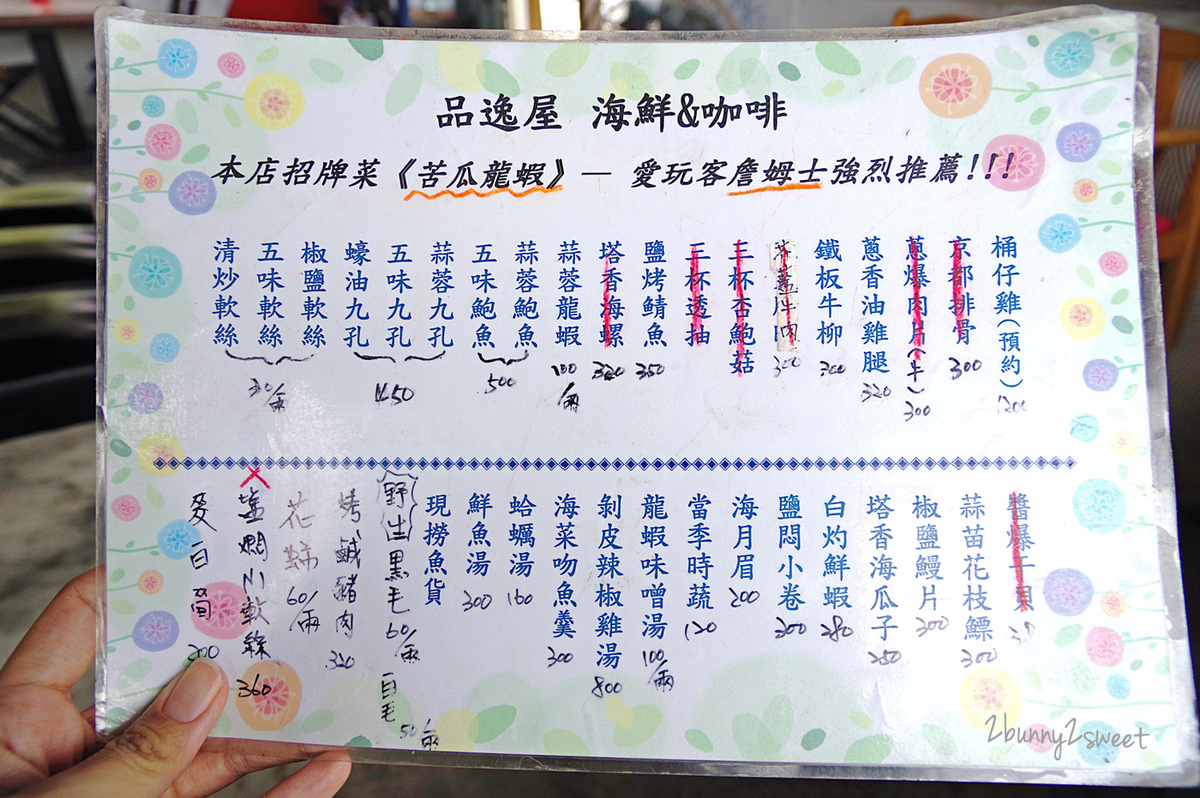 品逸屋 海鮮&咖啡
本店招牌菜《苦瓜龍蝦》— 愛玩客詹姆士強烈推薦!!!
桶仔雞(預約) 1200
京都排骨 300
蔥爆肉片(牛) 300
蔥香油雞腿 320
鐵板牛柳 300
牛肉 300
三杯杏鮑菇
三杯透抽
鹽烤鯖魚 350
塔香海螺 320
蒜蓉龍蝦 100/兩
蒜蓉鮑魚
五味鮑魚
500
蒜蓉九孔
五味九孔
蠔油九孔
450
椒鹽軟絲
五味軟絲
清炒軟絲
30/兩
醬爆干貝
蒜苗花枝鰾 300
椒鹽鰻片 300
塔香海瓜子 250
白灼鮮蝦 280
鹽悶小卷 200
海月眉 200
當季時蔬 120
龍蝦味噌湯 100/兩
剝皮辣椒雞湯 800
海菜吻魚羹 300
蛤蠣湯 160
鮮魚湯 300
現撈魚貨
野生黑毛 60/兩 白毛 50/兩
烤鹹豬肉 320
花 60/兩
鹽燜小軟絲 360
茭白筍 200
2bunny2sweet